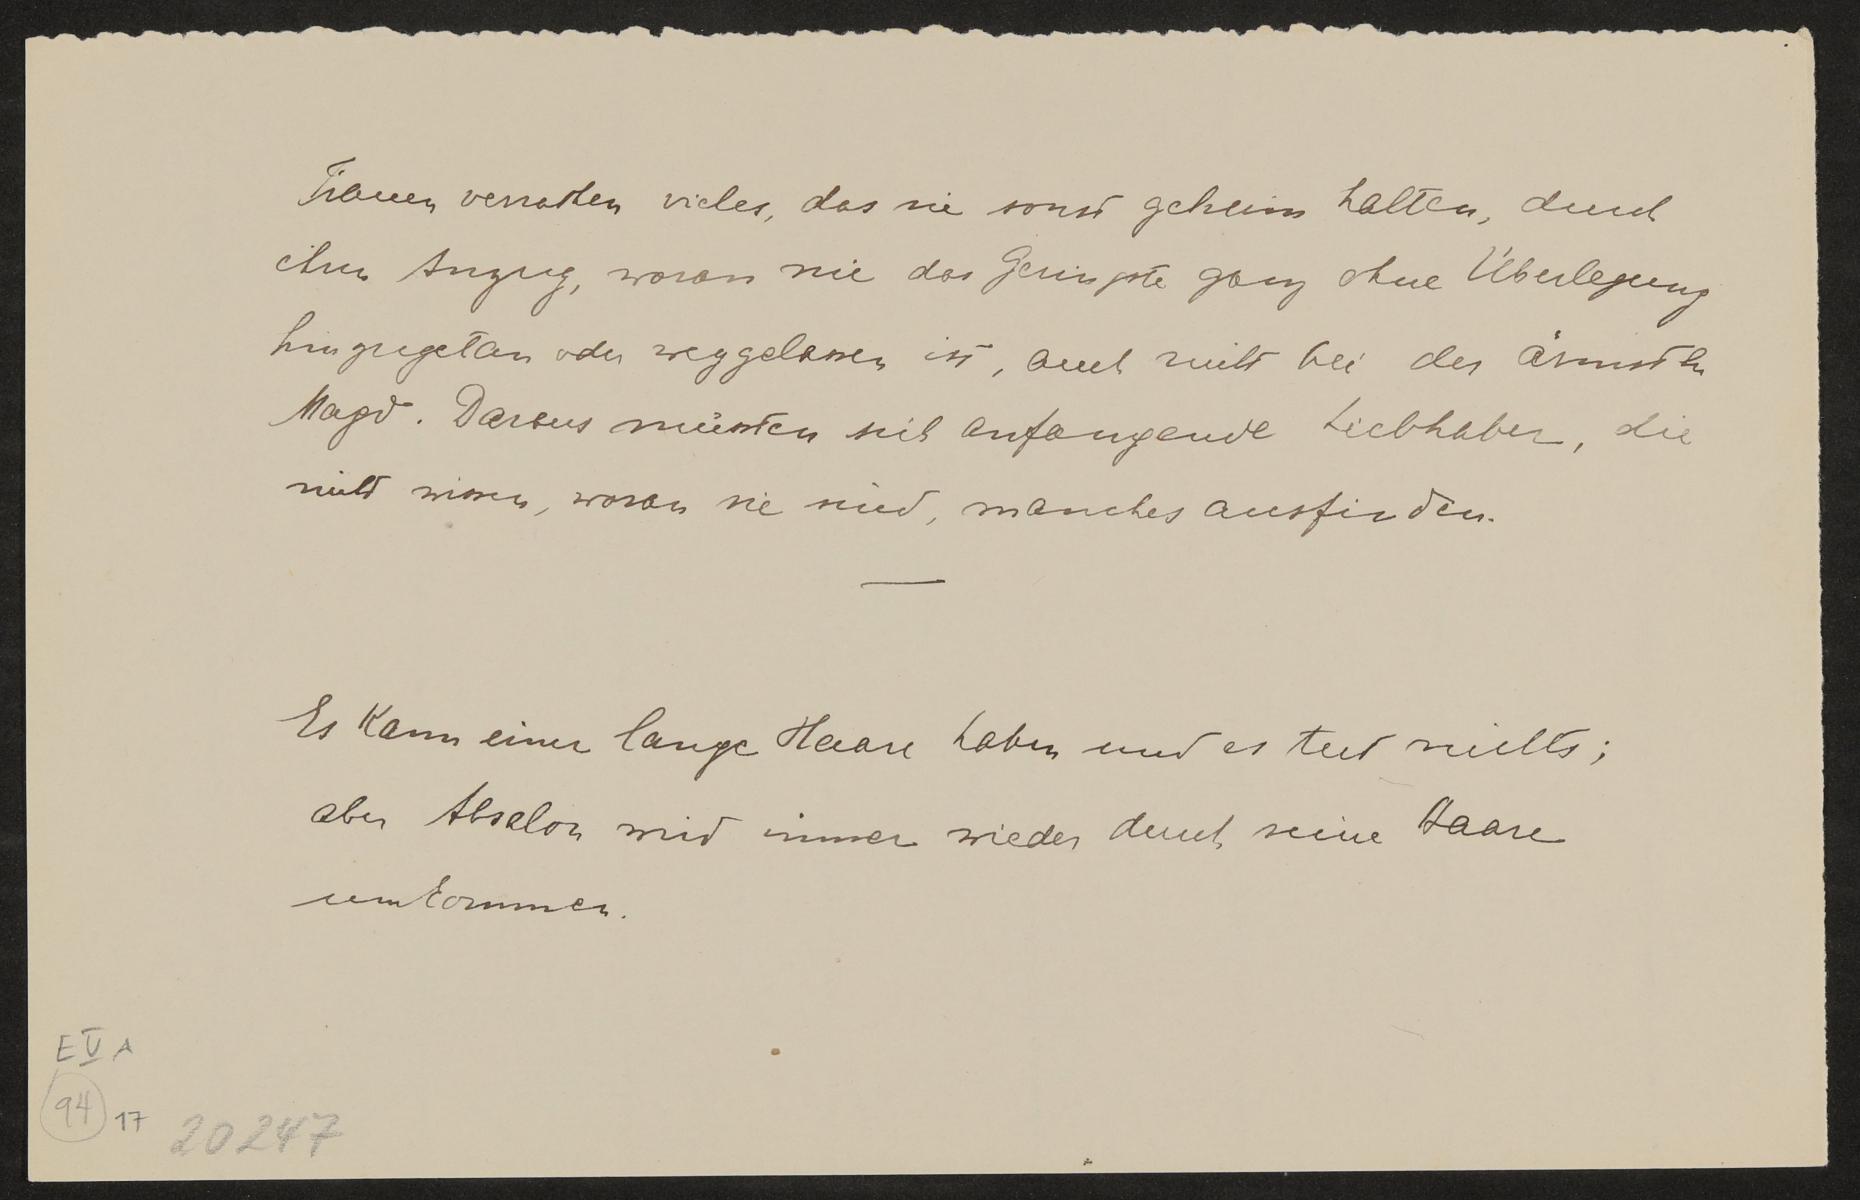 Frauen verrathen vieles, das sie sonst geheim halten, durch
ihren Anzug, woran nie das Geringste ganz ohne Überlegung
hinzugetan oder weggelassen ist, auch nicht bei der ärmsten
Magd. Daraus müssten sich anfangende Liebhaber, die
nicht wissen, woran sie sind, manches ausfinden.
—
Es kann einer lange Haare haben und es tut nichts;
aber Absalon wird immer wieder durch seine Haare
umkommen.
E V A
94 17 20247